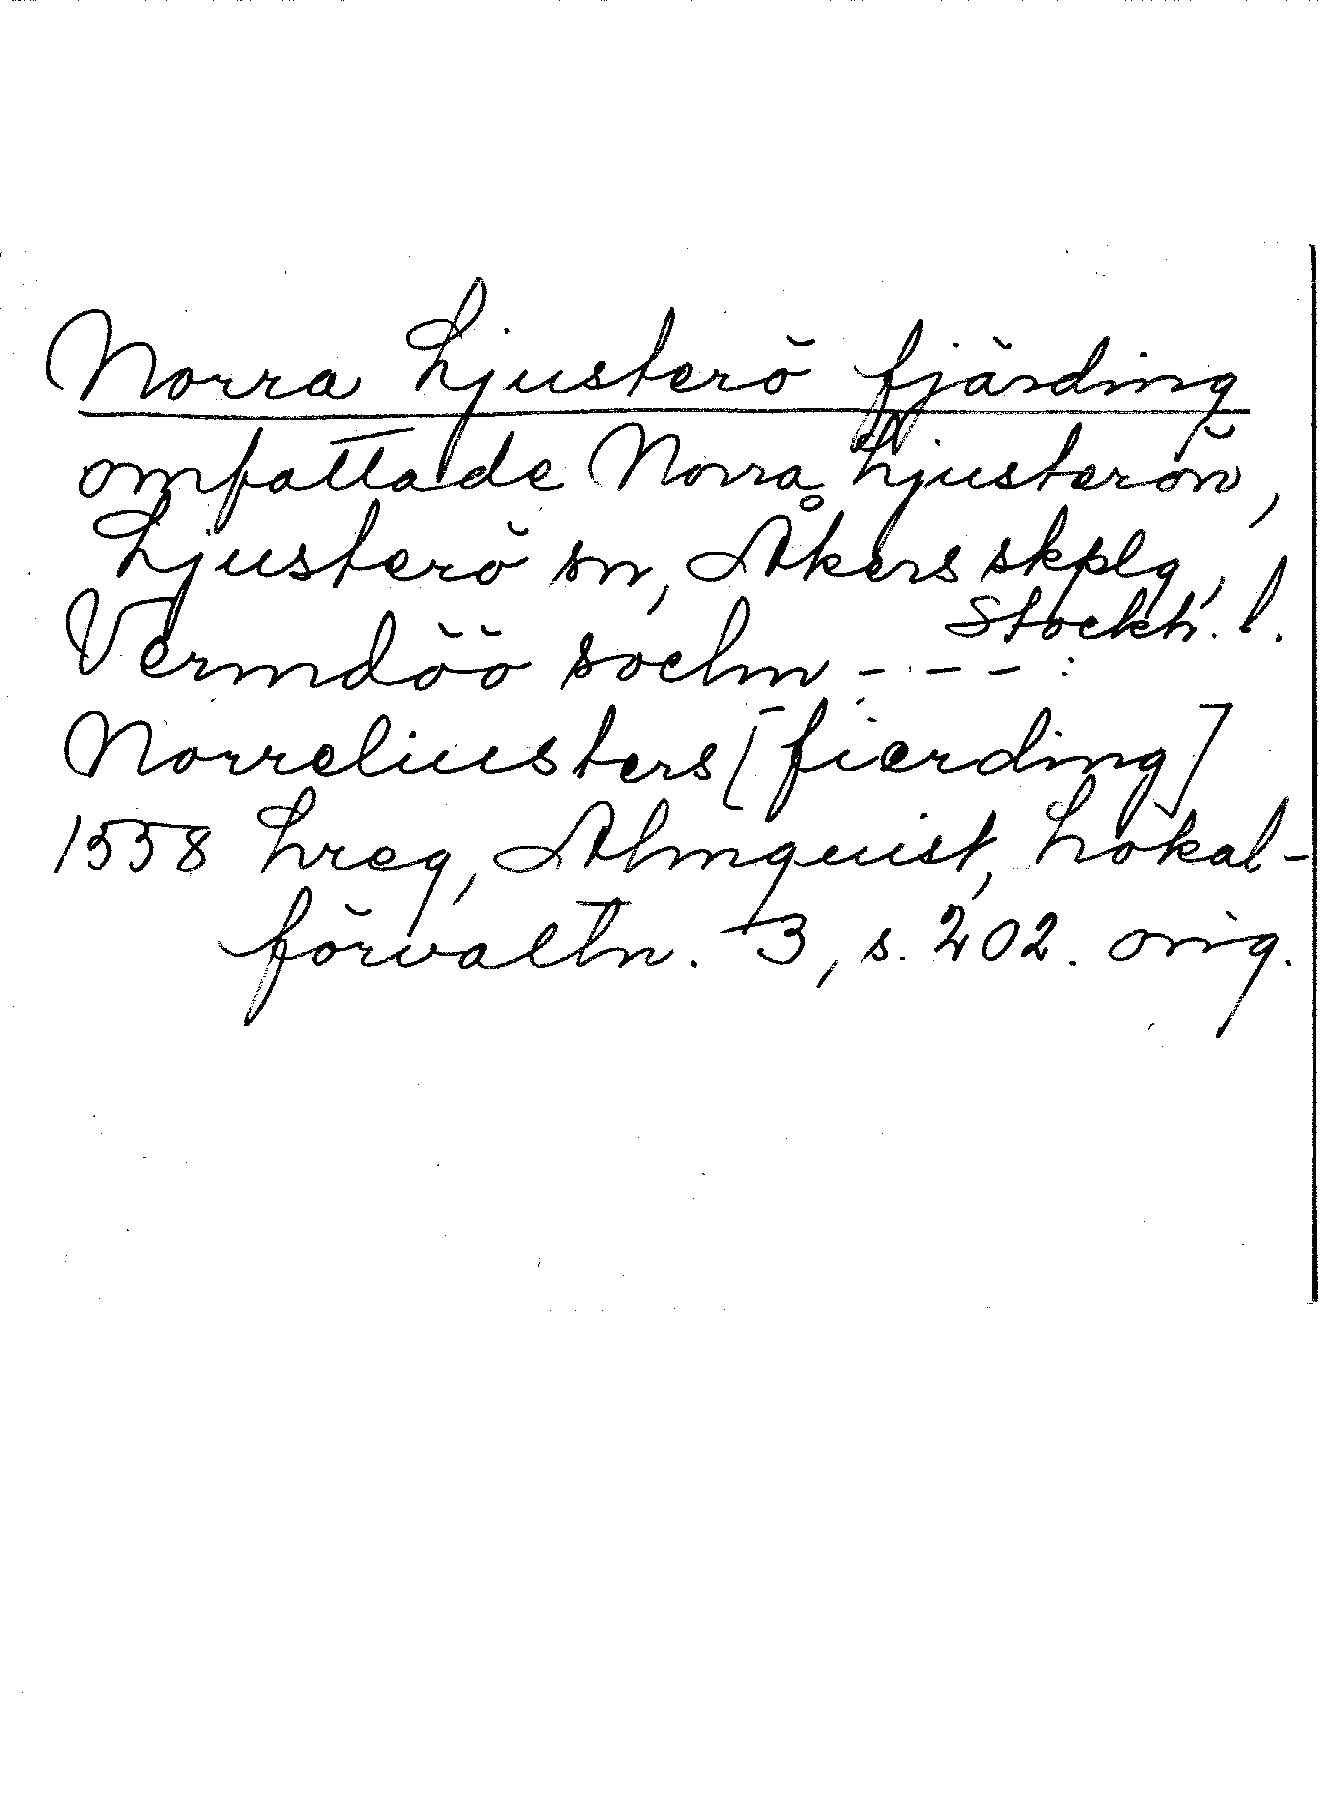 Norra Ljusterö fjärding
omfattade Norra Ljusterön,
Ljusterö sn, Åkers skplg,
Stockh. l.
Vermdöö sochn - - - :
Norreliusters [fierding]
1558 Lreg, Almquist, Lokal-
förvaltn. 3, s. 202. orig.